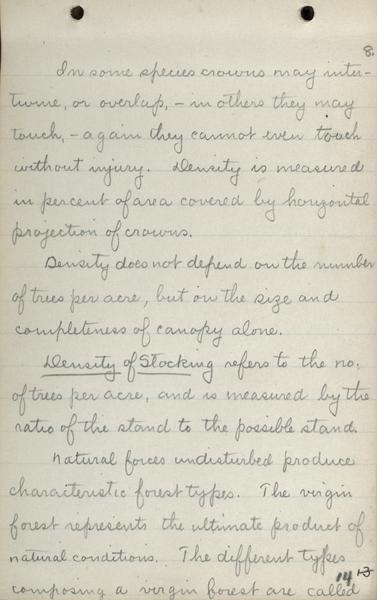 8.
In some species crowns may inter-
twine, or overlap, - in others they may
touch, - again they cannot even touch
without injury. Density is measured
in percent of area covered by horizontal
projection of crowns.
Density does not depend on the number
of trees per acre, but on the size and
completeness of canopy alone.
Density of Stocking refers to the no.
of trees per acre, and is measured by the
ratio of the stand to the possible stand.
Natural forces undisturbed produce
characteristic forest types. The virgin
forest represents the ultimate product of
natural conditions. The different types
composing a virgin forest are called
14